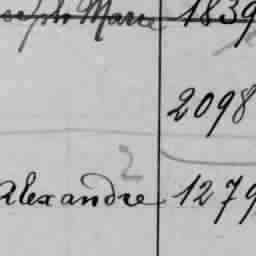 Marie 1839
2098
2
Alexandre 1279